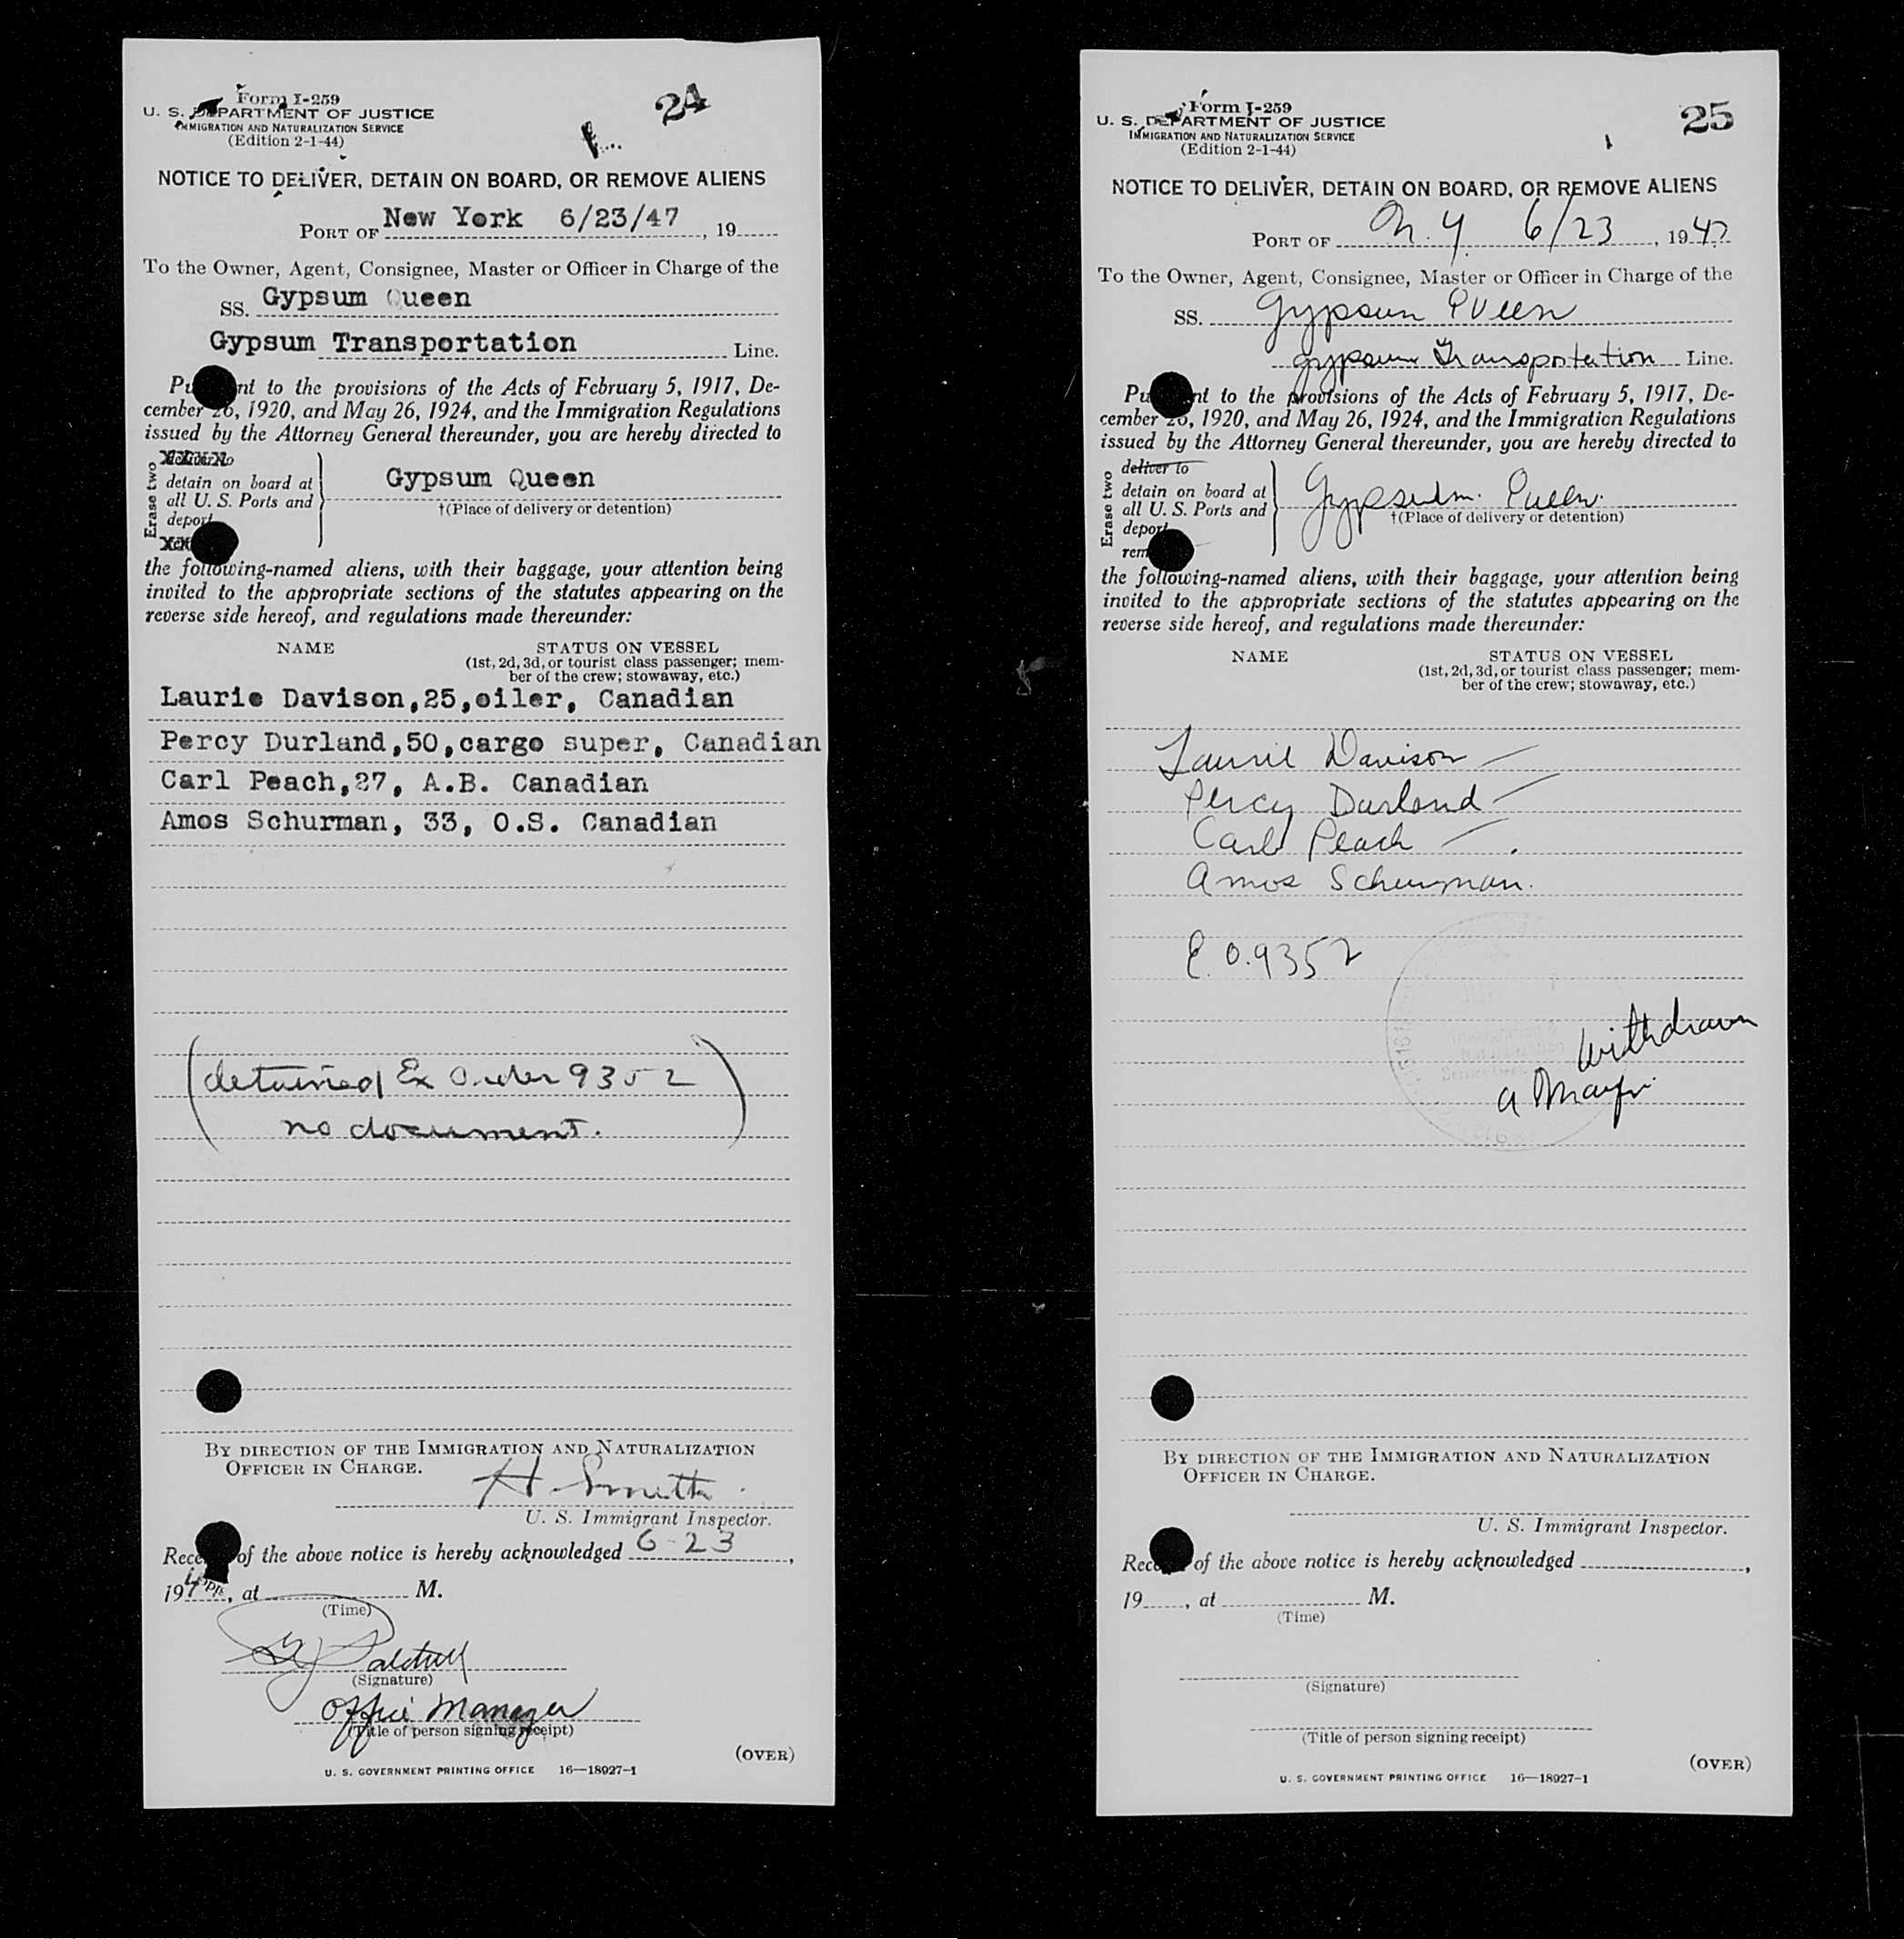 Form I-259
U. S. DEPARTMENT OF JUSTICE
IMMIGRATION AND NATURALIZATION SERVICE
(Edition 2-1-44)
24
NOTICE TO DELIVER, DETAIN ON BOARD, OR REMOVE ALIENS
PORT OF New York 6/23/47, 19
To the Owner, Agent, Consignee, Master or Officer in Charge of the
SS. Gypsum Queen
Gypsum Transportation Line.
Pu nt to the provisions of the Acts of February 5, 1917, De-
cember 26, 1920, and May 26, 1924, and the Immigration Regulations
issued by the Attorney General thereunder, you are hereby directed to
Erase two
detain on board at
all U. S. Ports and
deport
Gypsum Queen
†(Place of delivery or detention)
the following-named aliens, with their baggage, your attention being
invited to the appropriate sections of the statutes appearing on the
reverse side hereof, and regulations made thereunder:
NAME STATUS ON VESSEL
(1st, 2d, 3d, or tourist class passenger; mem-
ber of the crew; stowaway, etc.)
Laurie Davison,25,oiler, Canadian
Percy Durland,50,cargo super, Canadian
Carl Peach,27, A.B. Canadian
Amos Schurman, 33, O.S. Canadian
(detained Ex Order 9352
no document.)
BY DIRECTION OF THE IMMIGRATION AND NATURALIZATION
OFFICER IN CHARGE.
H. Smith
U. S. Immigrant Inspector.
Rece of the above notice is hereby acknowledged 6-23,
19 , at M.
(Time)
(Signature)
Office Manager
(Title of person signing receipt)
(OVER)
U. S. GOVERNMENT PRINTING OFFICE 16—18927-1
Form I-259
U. S. DEPARTMENT OF JUSTICE
IMMIGRATION AND NATURALIZATION SERVICE
(Edition 2-1-44)
25
NOTICE TO DELIVER, DETAIN ON BOARD, OR REMOVE ALIENS
PORT OF N.Y. 6/23, 1947
To the Owner, Agent, Consignee, Master or Officer in Charge of the
SS. Gypsum Queen
Gypsum Transportation Line.
Pu nt to the provisions of the Acts of February 5, 1917, De-
cember 26, 1920, and May 26, 1924, and the Immigration Regulations
issued by the Attorney General thereunder, you are hereby directed to
Erase two
deliver to
detain on board at
all U. S. Ports and
deport
rem
Gypsum Queen
†(Place of delivery or detention)
the following-named aliens, with their baggage, your attention being
invited to the appropriate sections of the statutes appearing on the
reverse side hereof, and regulations made thereunder:
NAME STATUS ON VESSEL
(1st, 2d, 3d, or tourist class passenger; mem-
ber of the crew; stowaway, etc.)
Laurie Davison
Percy Durland
Carl Peach
Amos Schurman.
E.O.9352
Withdrawn
BY DIRECTION OF THE IMMIGRATION AND NATURALIZATION
OFFICER IN CHARGE.
U. S. Immigrant Inspector.
Rece of the above notice is hereby acknowledged ,
19 , at M.
(Time)
(Signature)
(Title of person signing receipt)
(OVER)
U. S. GOVERNMENT PRINTING OFFICE 16—18927-1